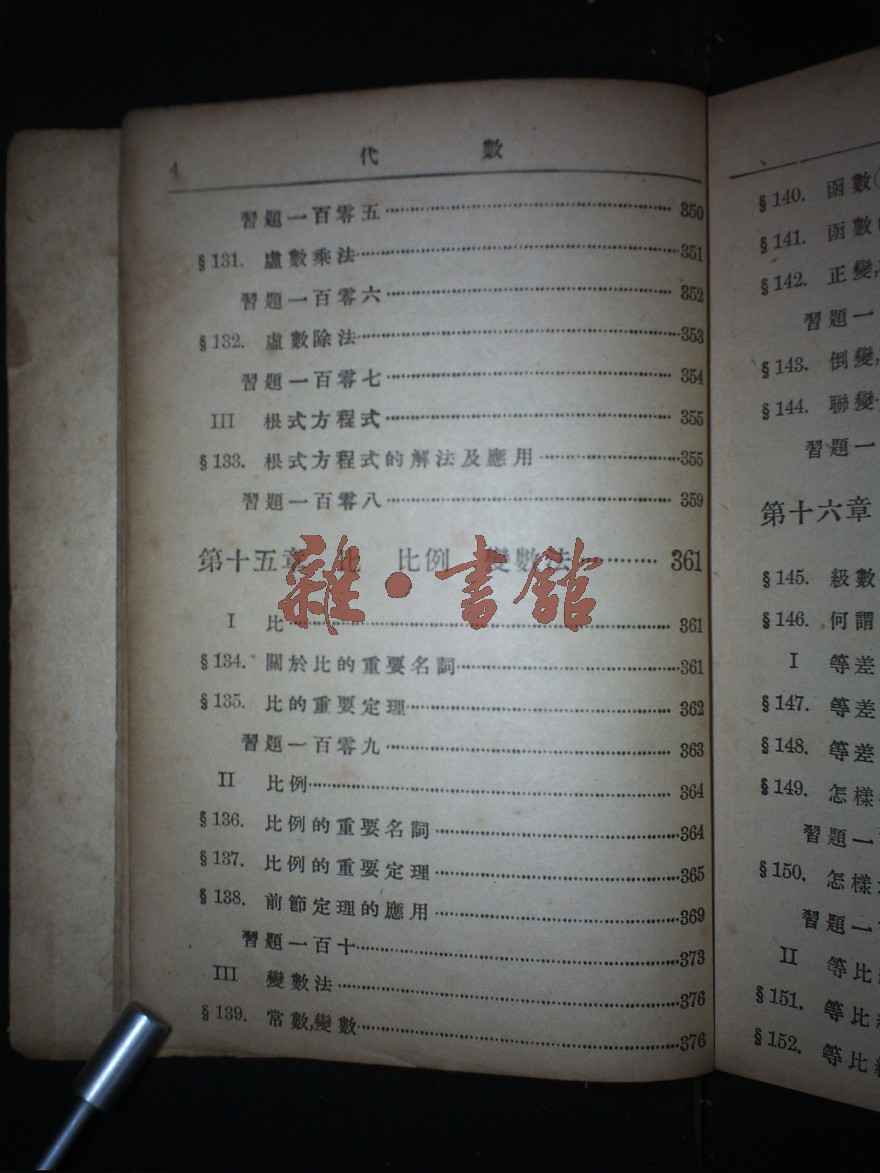 4 代數
習題一百零五 350
§131. 虛數乘法 351
習題一百零六 352
§132. 虛數除法 353
習題一百零七 354
III 根式方程式 355
§133. 根式方程式的解法及應用 355
習題一百零八 359
第十五章 比 比例 變數法 361
雜·書館
I 比 361
§134. 關於比的重要名詞 361
§135. 比的重要定理 362
習題一百零九 363
II 比例 364
§136. 比例的重要名詞 364
§137. 比例的重要定理 365
§138. 前節定理的應用 369
習題一百十 373
III 變數法 376
§139. 常數,變數 376
§140. 函數
§141. 函數
§142. 正變,
習題一
§143. 倒變,
§144. 聯變
習題一
第十六章
§145. 級數
§146. 何謂
I 等差
§147. 等差
§148. 等差
§149. 怎樣
習題一
§150. 怎樣
習題一
II 等比
§151. 等比
§152. 等比